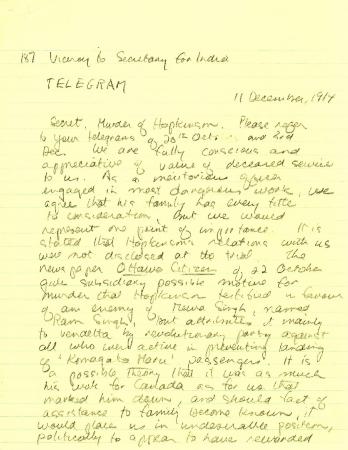 187 Viceroy to Secretary for India
TELEGRAM
11 December, 1914
Secret. Murder of Hopkinson. Please refer
to your telegrams of 20th Oct and 2nd
Dec. We are fully conscious and
appreciative of value of deceased service
to us. As a meritorious officer
engaged in most dangerous work, we
agree that his family has every title
to consideration, but we would
represent one point of importance. It is
stated that Hopkinson's relations with us
were not disclosed at the trial. The
newspaper Ottawa Citizen of 22 October
gives subsidiary possible motive for
murder that Hopkinson testified in favour
of an enemy of Mewa Singh, named
"Ram Singh", but attributes it mainly
to vendetta by revolutionary party against
all who were active in preventing landing
of 'Komagata Maru' passengers. It is
a possible theory that it was as much
his work for Canada as for us that
marked him down, and should fact of
assistance to family become known, it
would place us in undesirable position,
politically to appear to have rewarded